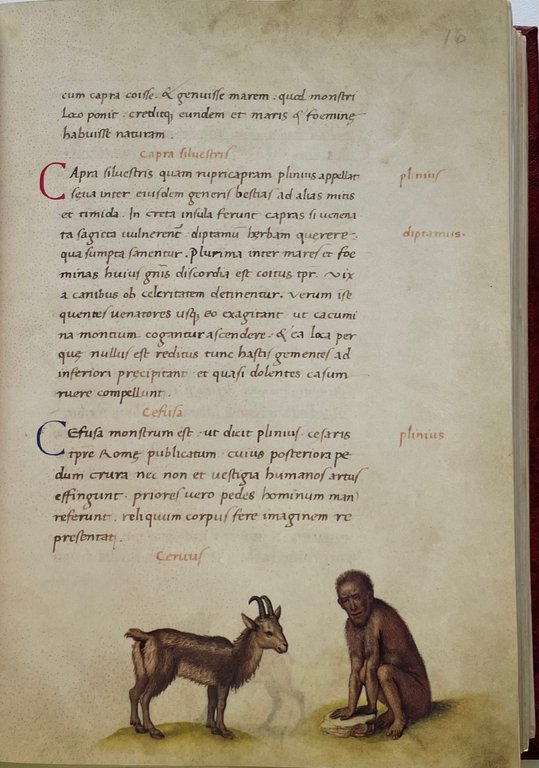 16
cum capra coisse. & genuisse marem. quod monstri
loco ponit. creditq; eundem et maris & foeminę
habuisse naturam.
Capra silvestris
CApra silvestris quam rupricapram plinius appellat
seva inter eiusdem generis bestias ad alias mitis
et timida. In creta insula ferunt capras si venena
ta sagitta vulnerent diptamũ herbam querere.
qua sumpta sanentur. Plurima inter mares et foe
minas huius gñis discordia est coitus tpr. Vix
a canibus ob celeritatem detinentur. Verum ise
quentes venatores usq; eo exagitant ut cacumi
na montium cogantur ascendere. & ea loca per
quę nullus est reditus tunc hastis gementes ad
inferiori precipitant et quasi dolentes casum
ruere compellunt.
plinius
diptamus.
Cefusa
CEfusa monstrum est. ut dicit plinius. cesaris
tpre Romę publicatum. cuius posteriora pe
dum crura nec non et vestigia humanos artus
effingunt. priores vero pedes hominum man
referunt. reliquum corpus fere imaginem re
presentat.
plinius
Cervus